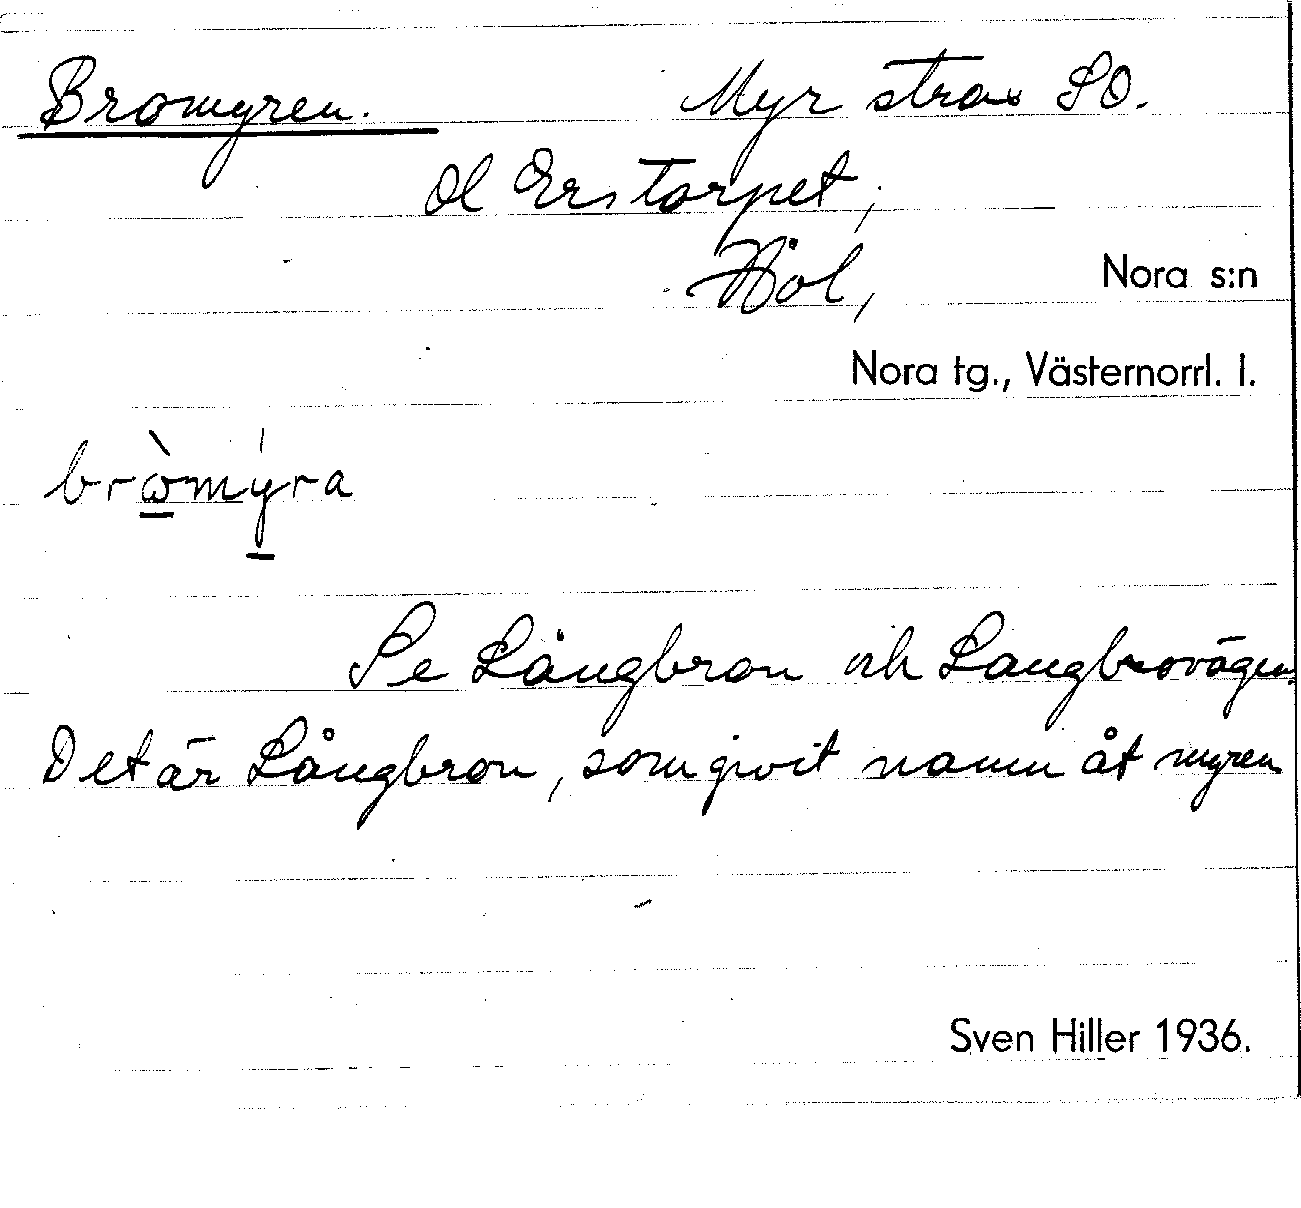 Bromyren. Myr strax SO.
Ol Erstorpet,
Höl, Nora s:n
Nora tg., Västernorrl. l.
bròmýra
Se Långbron och Långbrovägen.
Det är Långbron, som givit namn åt myren
Sven Hiller 1936.